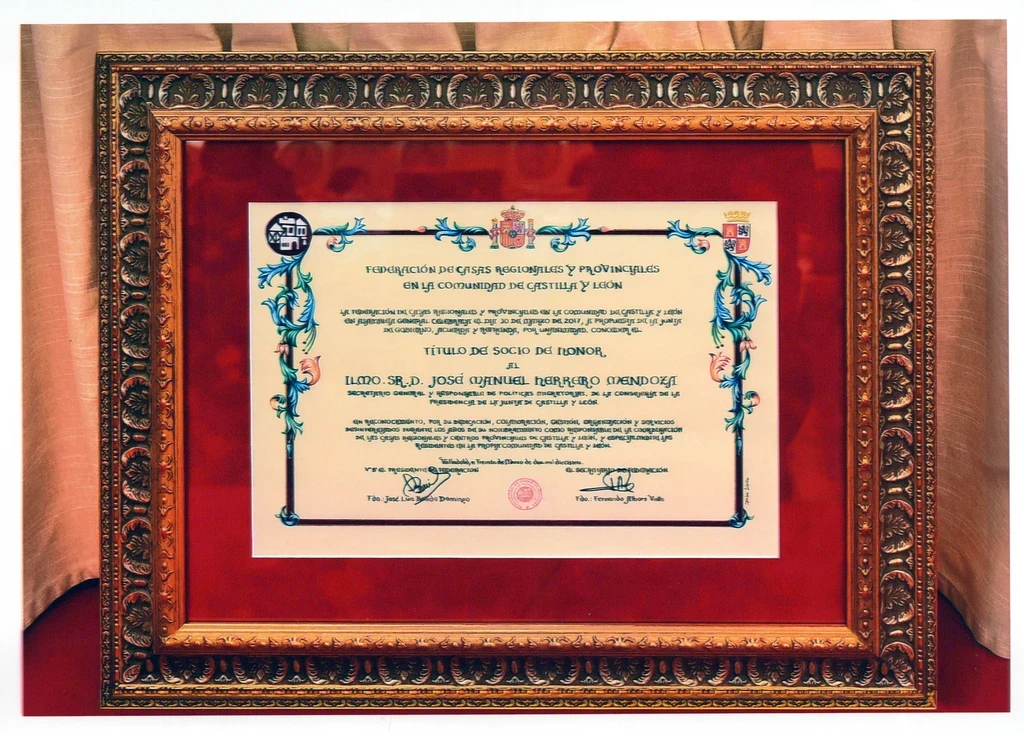 FEDERACIÓN DE CASAS REGIONALES Y PROVINCIALES
EN LA COMUNIDAD DE CASTILLA Y LEÓN
LA FEDERACIÓN DE CASAS REGIONALES Y PROVINCIALES EN LA COMUNIDAD DE CASTILLA Y LEÓN
EN ASAMBLEA GENERAL CELEBRADA EL DIA 30 DE MARZO DE 2017, A PROPUESTA DE LA JUNTA
DE GOBIERNO, ACUERDA Y REFRENDA, POR UNANIMIDAD, CONCEDER EL
TÍTULO DE SOCIO DE HONOR,
AL
ILMO. SR. D. JOSÉ MANUEL HERRERO MENDOZA
SECRETARIO GENERAL Y RESPONSABLE DE POLÍTICAS MIGRATORIAS, DE LA CONSEJERÍA DE LA
PRESIDENCIA DE LA JUNTA DE CASTILLA Y LEÓN.
EN RECONOCIMIENTO, POR SU DEDICACIÓN, COLABORACIÓN, GESTIÓN, ORGANIZACIÓN Y SERVICIOS
DURANTE LOS AÑOS DE SU NOMBRAMIENTO COMO RESPONSABLE DE LA COORDINACIÓN
DE LAS CASAS REGIONALES Y CENTROS PROVINCIALES DE CASTILLA Y LEÓN, Y ESPECIALMENTE LAS
RESIDENTES EN LA PROPIA COMUNIDAD DE CASTILLA Y LEÓN.
Valladolid, a Treinta de Marzo de dos mil diecisiete
Vº Bº EL PRESIDENTE DE FEDERACIÓN
EL SECRETARIO DE FEDERACIÓN
Fdo.: José Luis Domingo
Fdo.: Fernando Valle